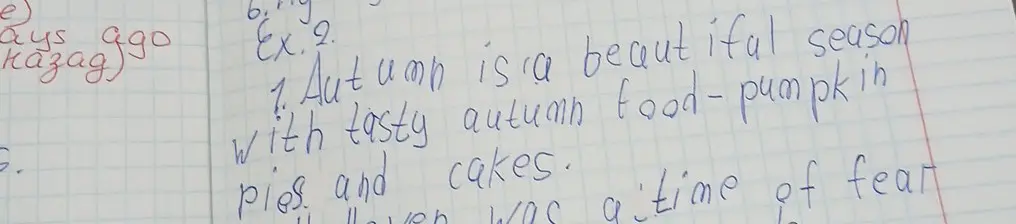 e)
ays ago
казад)
Ex. 2.
1. Autumn is a beautiful season
with tasty autumn food - pumpkin
pies and cakes.
was a time of fear